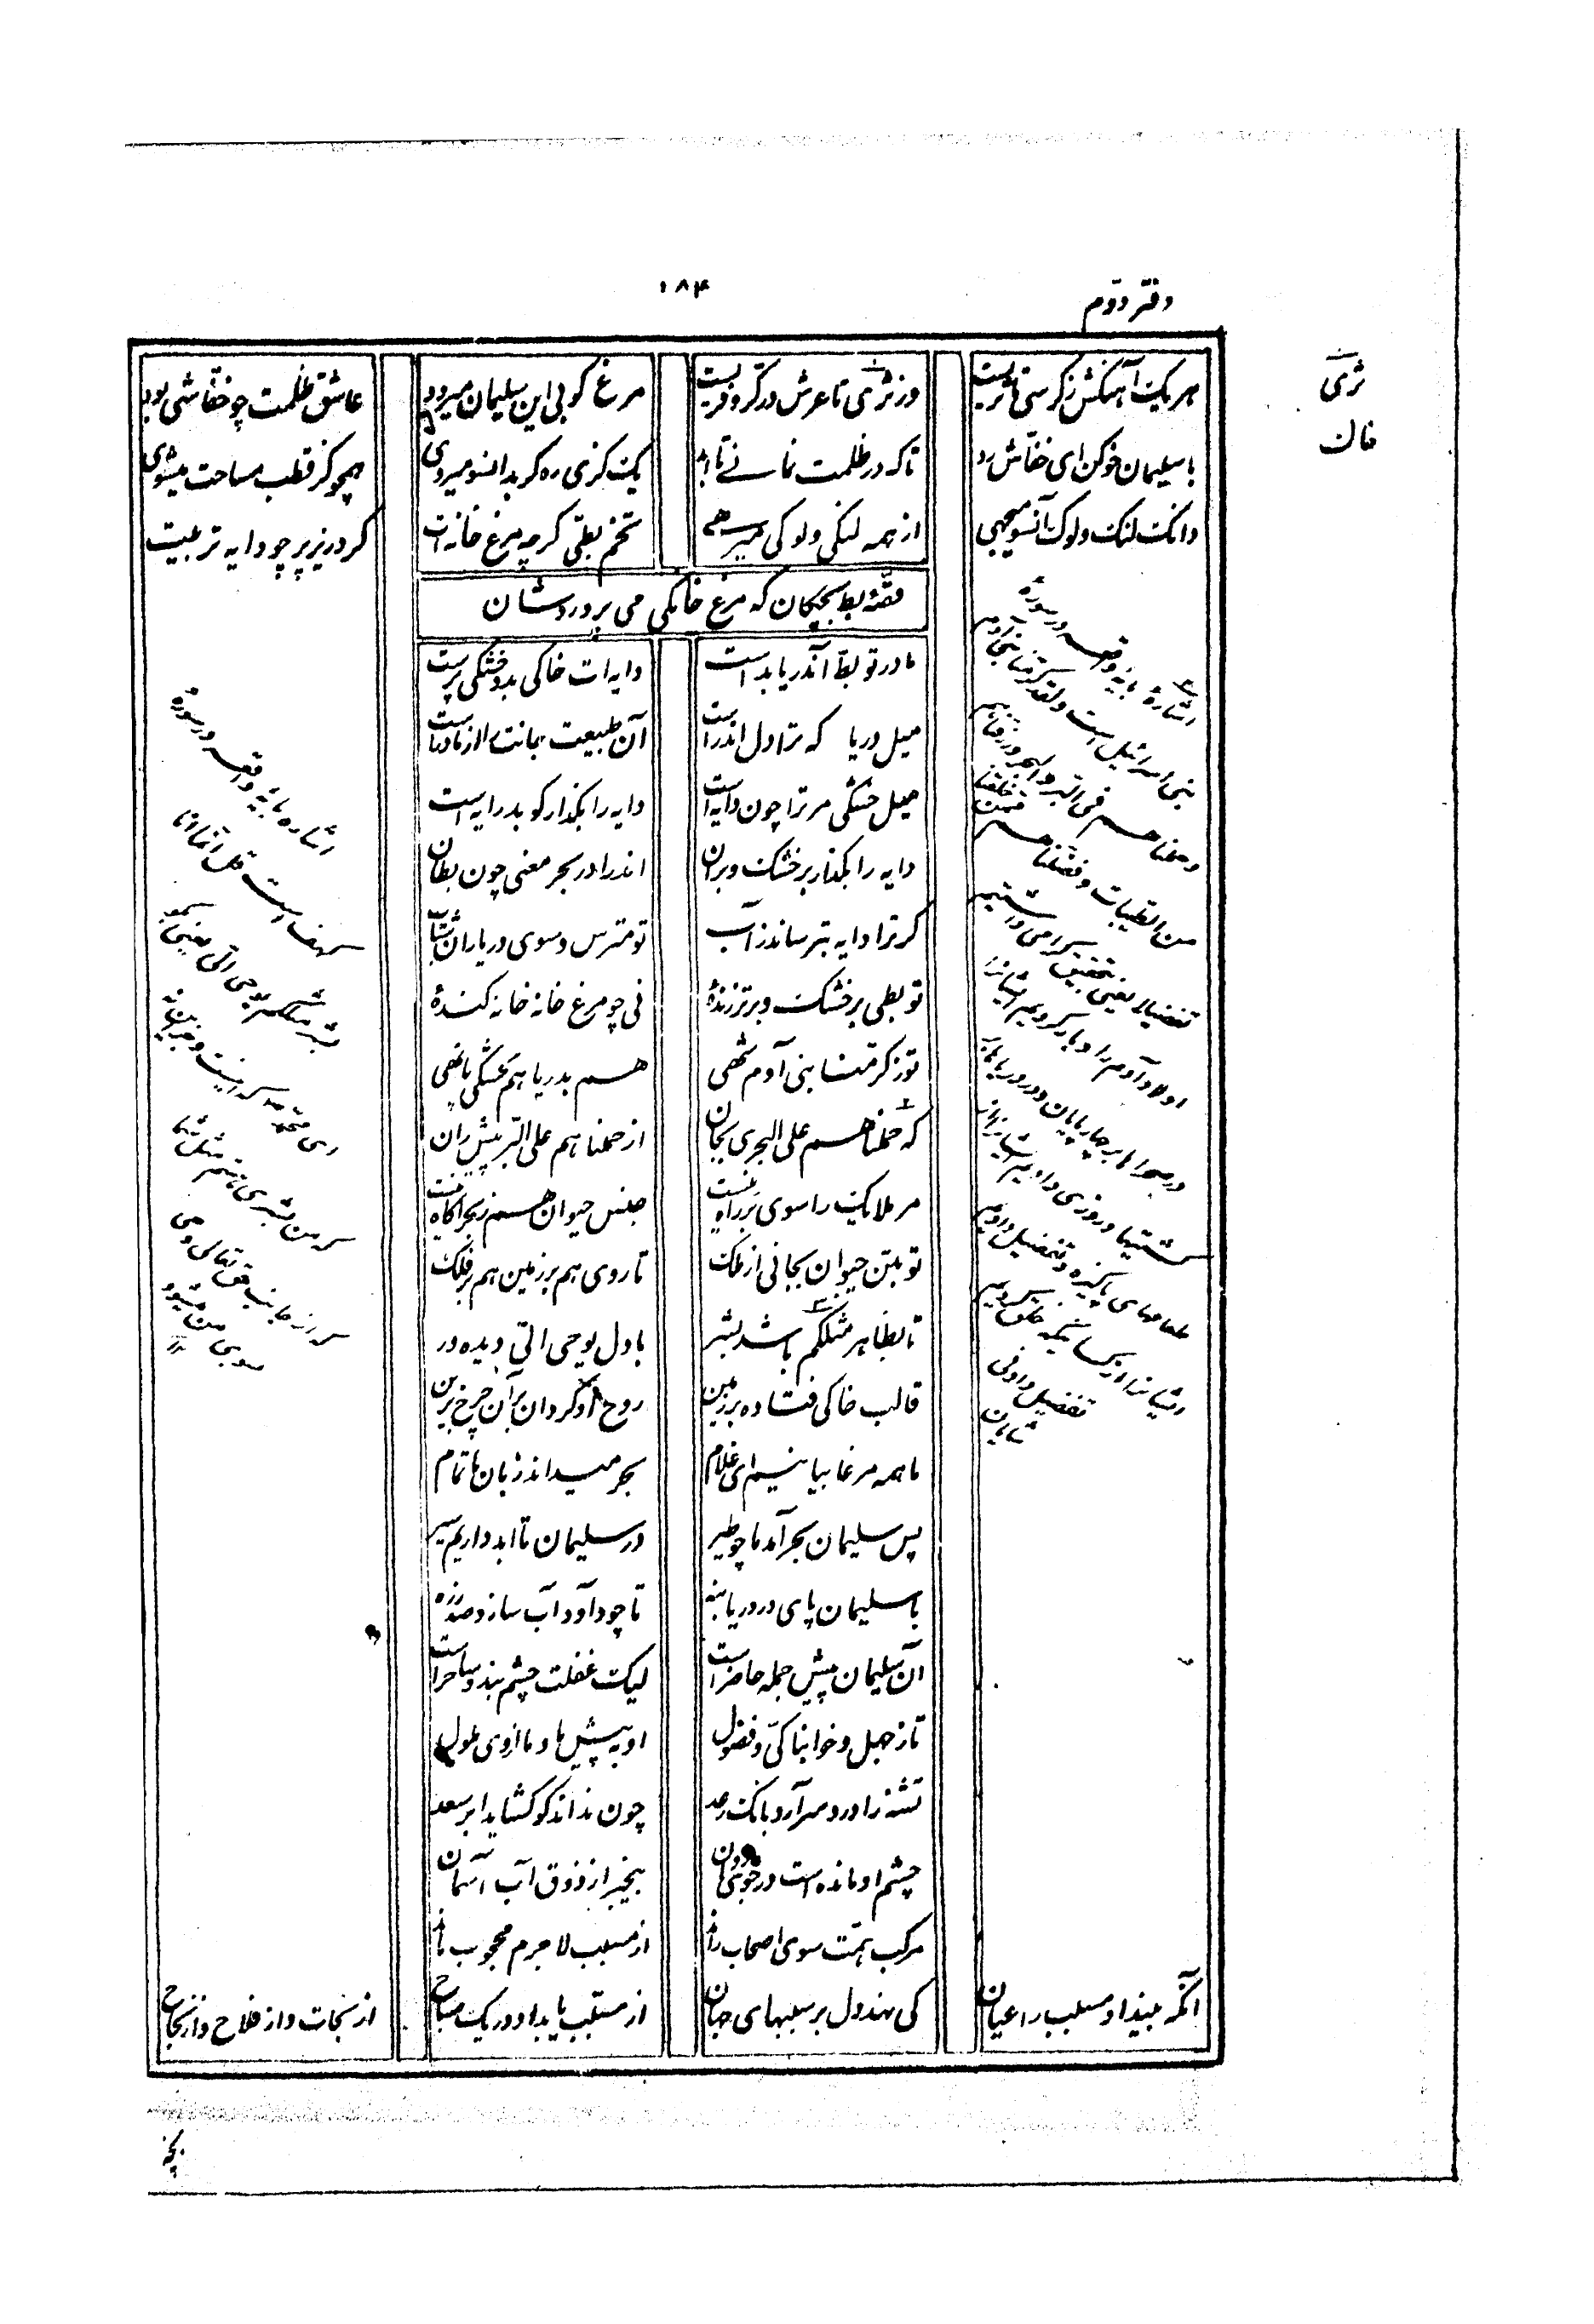 ۱۸۴
دفتر دوم
هر یک آهنگش ز کرسی تا ثریست
وز ثری تا عرش در کر و فریست
مرغ کو بی این سلیمان میرود
عاشق ظلمت چو خفاشی بود
با سلیمان خو کن ای خفاش رد
تا که در ظلمت نمانی تا ابد
یک گزی ره گر بدانسو میروی
همچو گز قطب مساحت میشوی
وانک لنگ و لوک آنسو میجهی
از همه لنگی و لوکی میرهی
تخم بطی گرچه مرغ خانه‌ات
کرد زیر پر چو دایه تربیت
قصهٔ بط بچگان که مرغ خانگی می پروردشان
مادر تو بط آن دریا بدست
دایه‌ات خاکی بد و خشکی پرست
میل دریا که ترا دل اندر است
آن طبیعت جانت را از مادر است
میل خشکی مر ترا چون دایه است
دایه را بگذار کو بد رایه است
دایه را بگذار بر خشک و بران
اندر آ در بحر معنی چون بطان
گر ترا دایه بترساند ز آب
تو مترس و سوی دریا ران شتاب
تو بطی بر خشک و بر تر زندهٔ
نی چو مرغ خانه خانه کندهٔ
تو ز کرمنا بنی آدم شهی
هم بدریا هم بخشکی پا نهی
که حملناهم علی البحری بجان
از حملناهم علی البر پیش ران
مر ملایک را سوی بر راه نیست
جنس حیوان هم ز بحر آگاه نیست
تو بتن حیوان بجانی از ملک
تا روی هم بر زمین هم بر فلک
تا بظاهر مثلکم باشد بشر
با دل یوحی الی دیده ور
قالب خاکی فتاده بر زمین
روح او گردان بر آن چرخ برین
ما همه مرغابیانیم ای غلام
بحر میداند زبان ما تمام
پس سلیمان بحر آمد ما چو طیر
در سلیمان تا ابد داریم سیر
با سلیمان پای در دریا بنه
تا چو داود آب سازد صد زره
آن سلیمان پیش جمله حاضر است
لیک غفلت چشم بند و ساحر است
تا ز جهل و خوابناکی و فضول
او به پیش ما و ما از وی ملول
تشنه را درد سر آرد بانگ رعد
چون نداند کو گشاید ابر سعد
چشم او مانده است در جوی روان
بیخبر از ذوق آب آسمان
مرکب همت سوی اصحاب راند
از مسبب لاجرم محجوب ماند
آنکه بیند او مسبب را عیان
کی نهد دل بر سببهای جهان
از مسبب یابد او در یک صباح
از نجات و از فلاح و از نجاح
ثری
خاک
اشارهٔ بآیهٔ واقعه در سورهٔ
بنی اسرائیل است ولقد کرمنا بنی آدم
وحملناهم فی البر والبحر ورزقناهم
من الطیبات وفضلناهم
تفضیلا یعنی بتحقیق گرامی داشتیم
اولاد آدم را و بار کردیم ایشانرا
در صحرا بر چارپایان و در دریا
کشتیها و روزی دادیم ایشانرا از
طعامهای پاکیزه و تفضیل دادیم
ایشانرا
تفضیل دادنی
شایان
اشاره بآیهٔ واقعه در سورهٔ
کهف است قل انما انا
بشر مثلکم یوحی الی یعنی بگو
ای محمد که
که من بشری هستم مثل شما
که از جانب حق تعالی وحی
بسوی من میشود